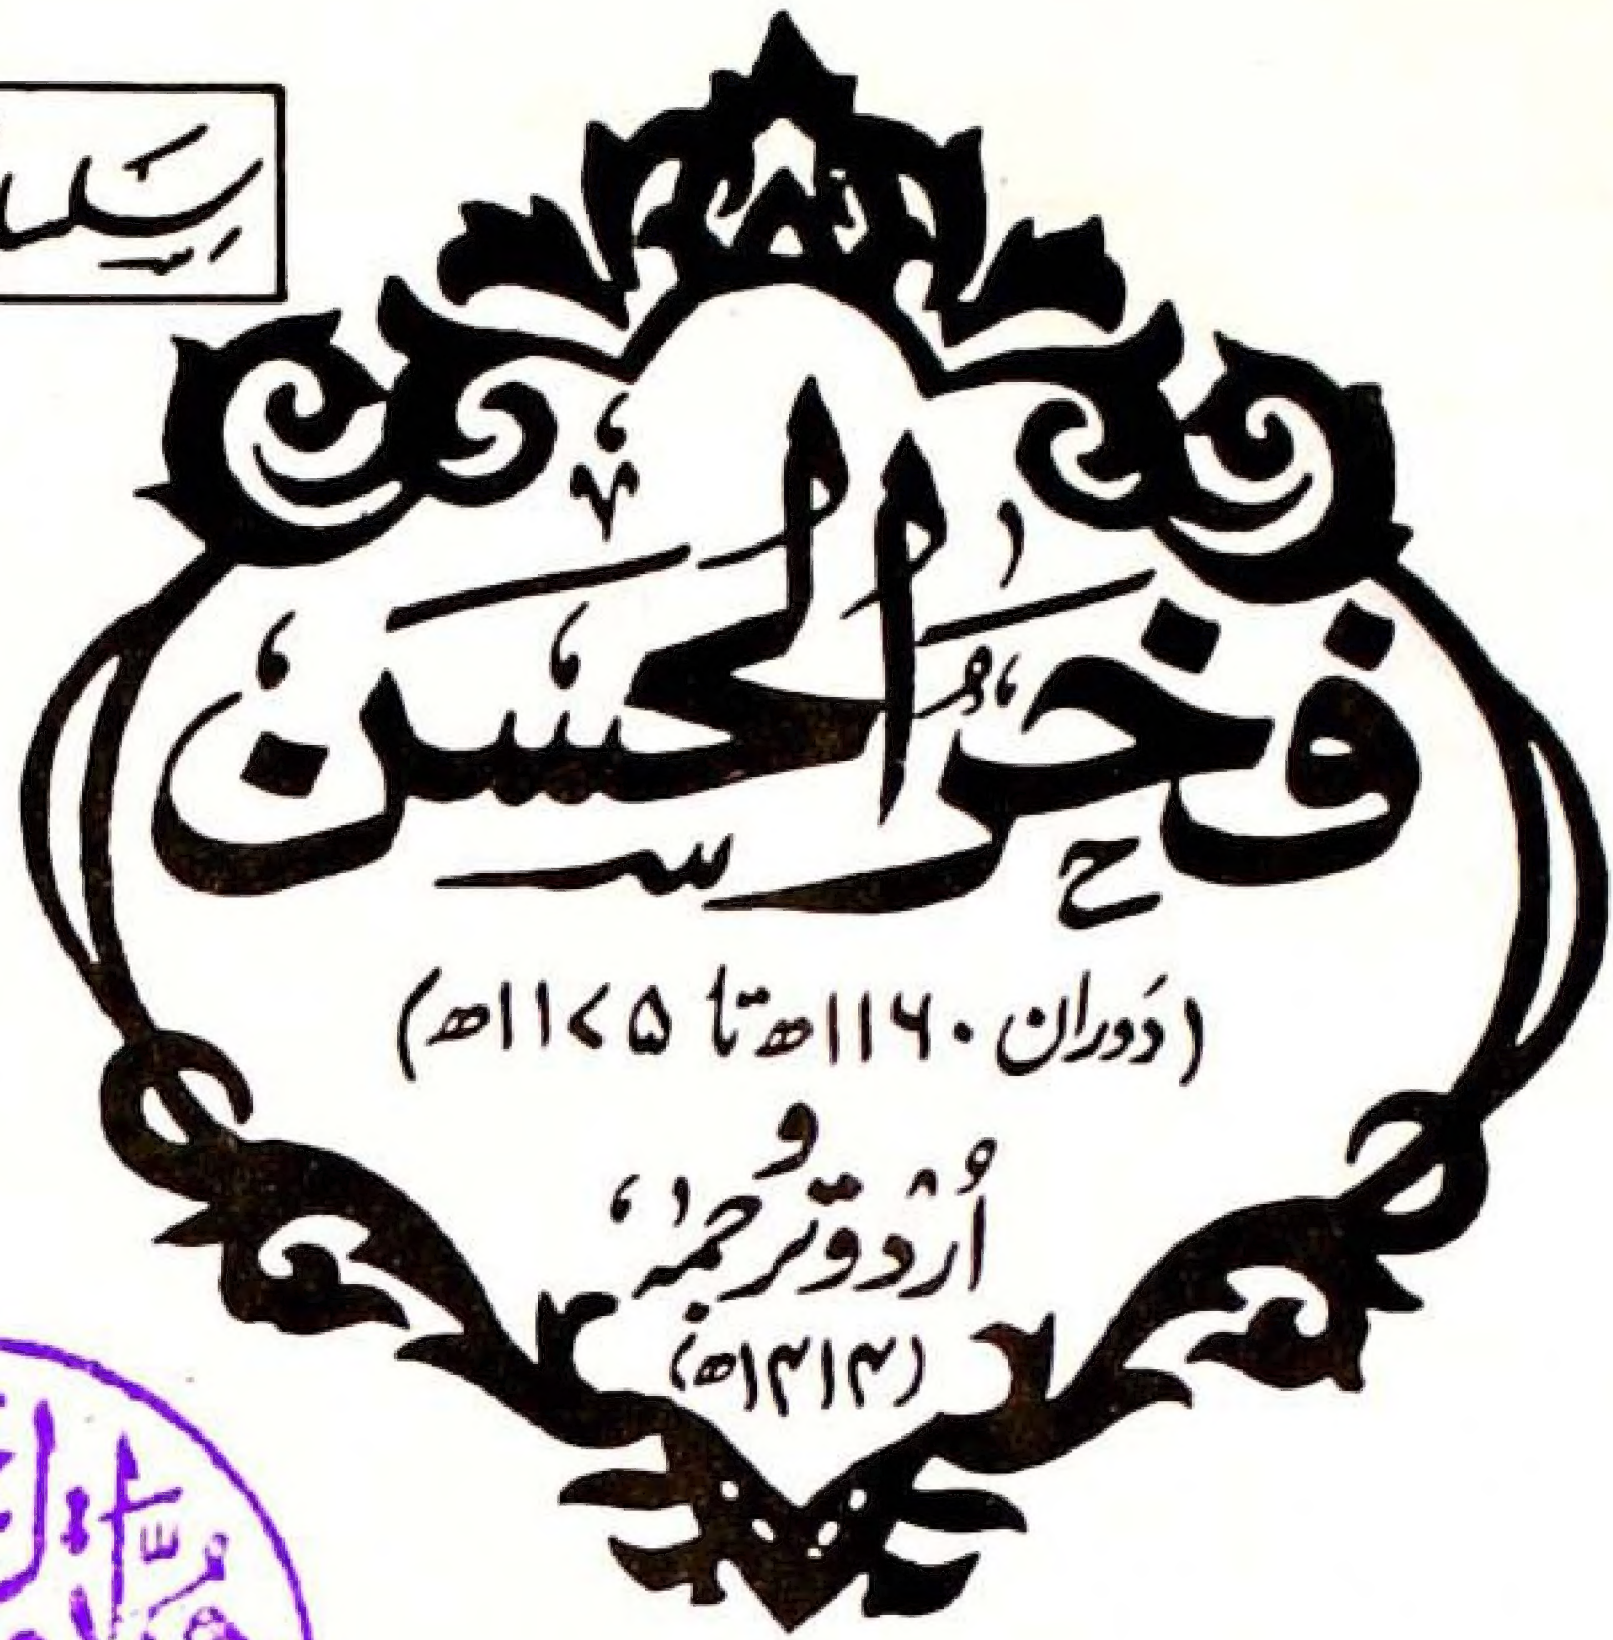 فخر الحسن
(دوران ۱۱۶۰ھ تا ۱۱۷۵ھ)
و
اُردو ترجمہ
(۱۴۱۴ھ)